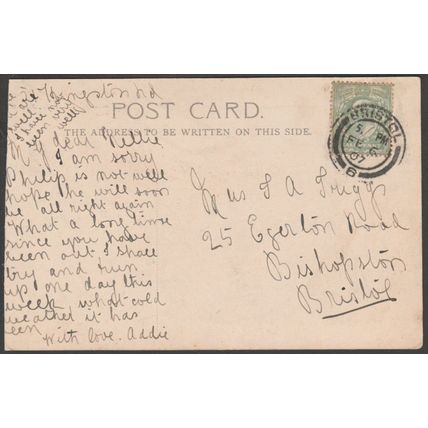 Kingstonrd
POST CARD.
THE ADDRESS TO BE WRITTEN ON THIS SIDE.
My dear Nellie
I am sorry
Philip is not well
hope he will soon
be all right again
What a long time
since you have
been out. I shall
try and run
up one day this
week. what cold
weather it has
been
With love. Addie
have not
been very
well
BRISTOL
5 PM
FE
07
6
Mrs S A
25 Egerton Road
Bishopston
Bristol